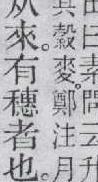 田曰素問云升
其穀麥。鄭注月
从來。有穗者也。